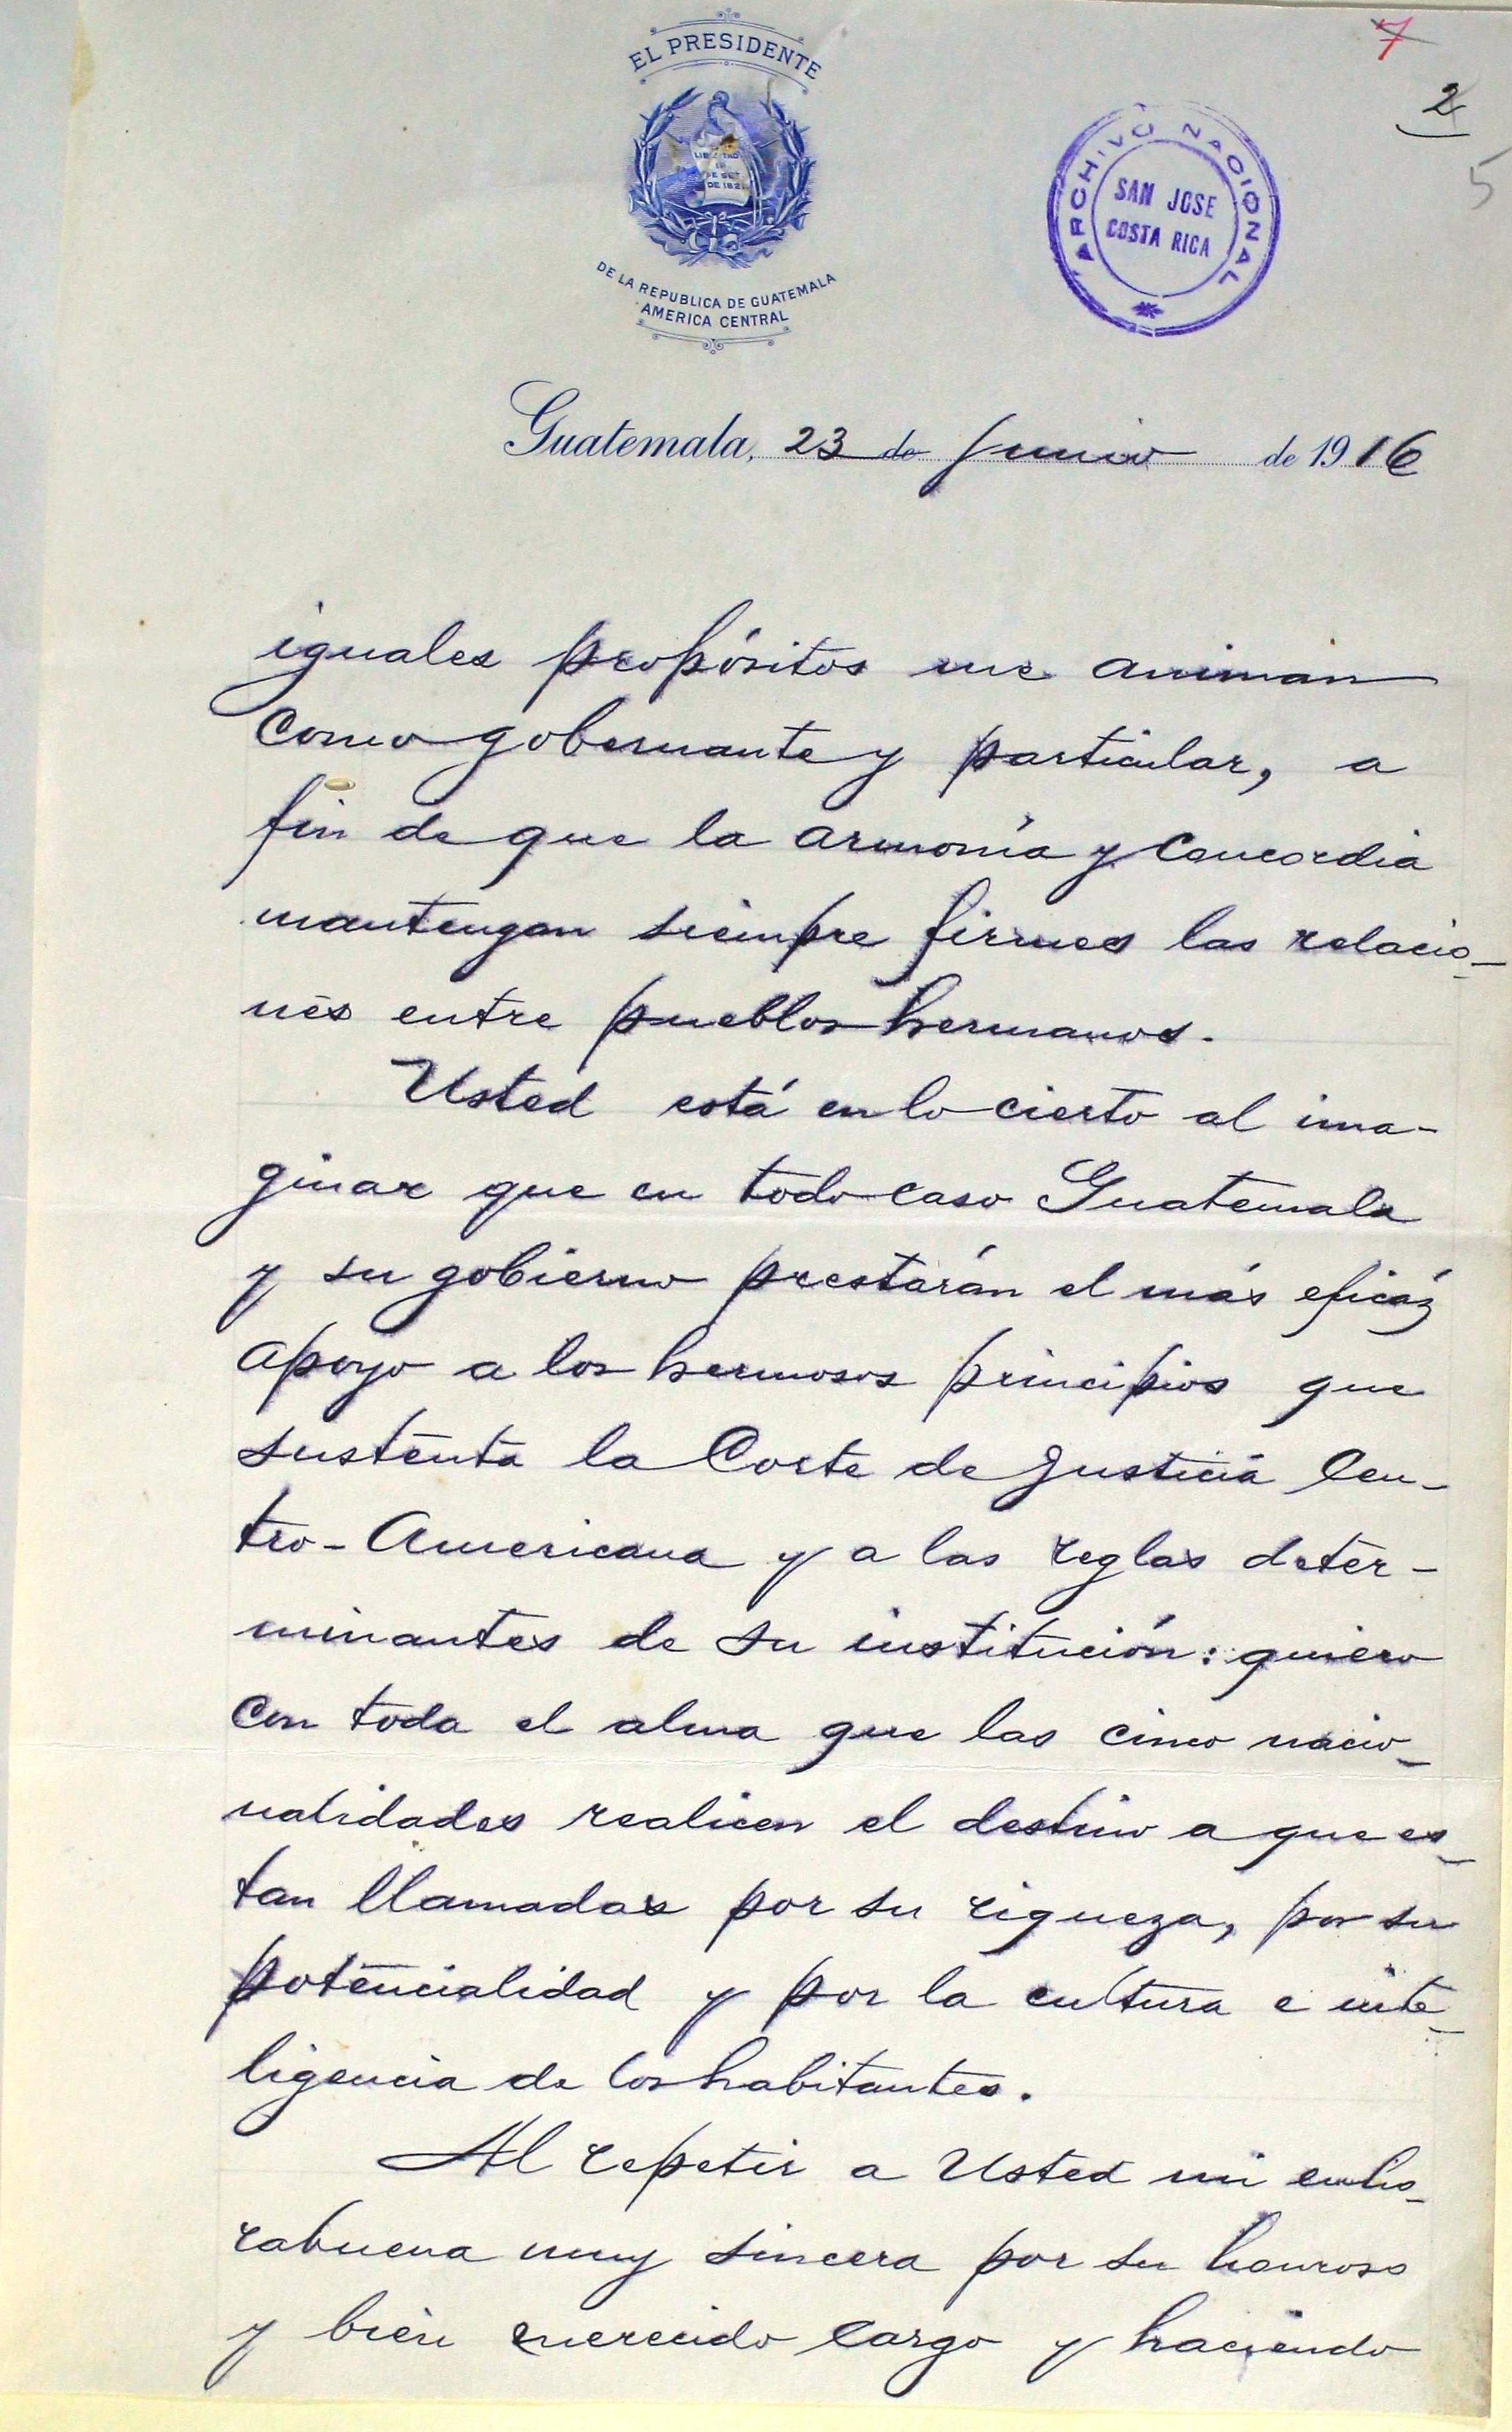 7
2
5
EL PRESIDENTE
LIBERTAD
15
DE SET
DE 1821
DE LA REPUBLICA DE GUATEMALA
AMERICA CENTRAL
ARCHIVO NACIONAL
SAN JOSE
COSTA RICA
Guatemala, 23 de Junio de 1916
iguales propósitos me animan
como gobernante y particular, a
fin de que la armonía y concordia
mantengan siempre firmes las relacio-
nes entre pueblos hermanos.
Usted está en lo cierto al ima-
ginar que en todo caso Guatemala
y su gobierno prestarán el más eficáz
apoyo a los hermosos principios que
sustenta la Corte de Justicia Cen-
tro-Americana y a las reglas deter-
minantes de su institución: quiero
con toda el alma que las cinco nacio-
nalidades realicen el destino a que es-
tan llamadas por su riqueza, por su
potencialidad y por la cultura e inte-
ligencia de los habitantes.
Al repetir a Usted mi enho-
rabuena muy sincera por su honroso
y bien merecido cargo y haciendo